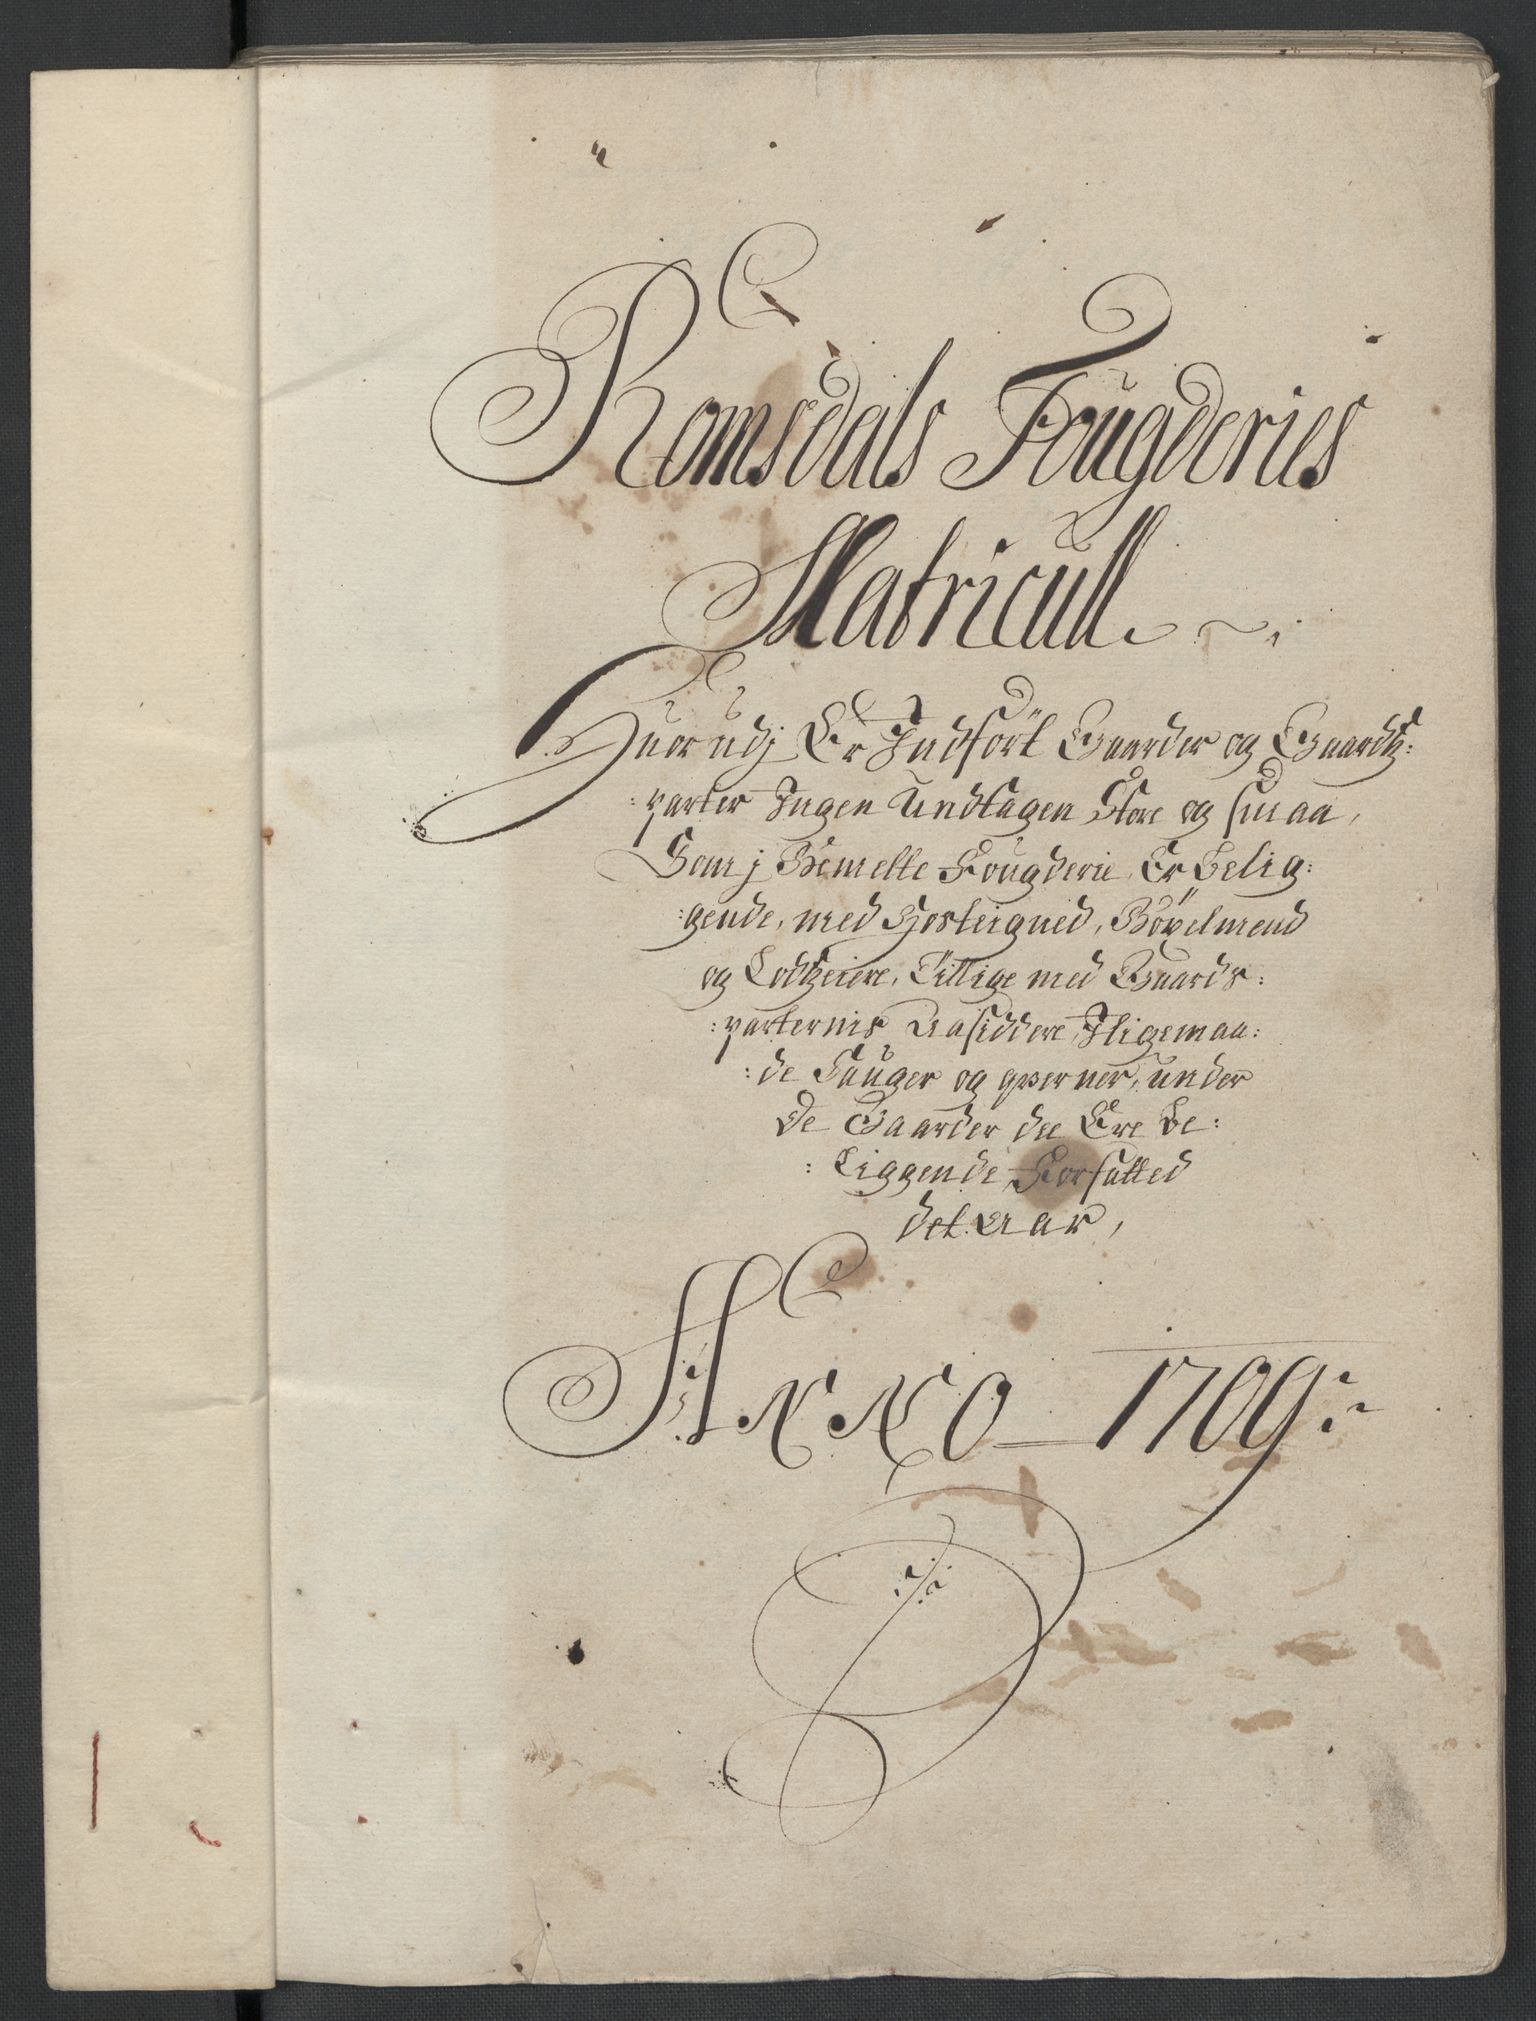 Romsdals Fougderies
Matricull
Huorudj Er Indført Gaarder og Gaardtz:
:parter Ingen Undtagen Store og smaa,
Som j Bemelte Fougderie Er belig:
:gende, med Hosteigned, Böxelmend
og Lodtzeiere, Tillige med Gaards:
:parternis Aasiddere, Iligemaa:
:de Sauger og qverner, under
De Gaarder die Ere be:
:liggende, Forfatted
det Aar,
ANNO 1709: